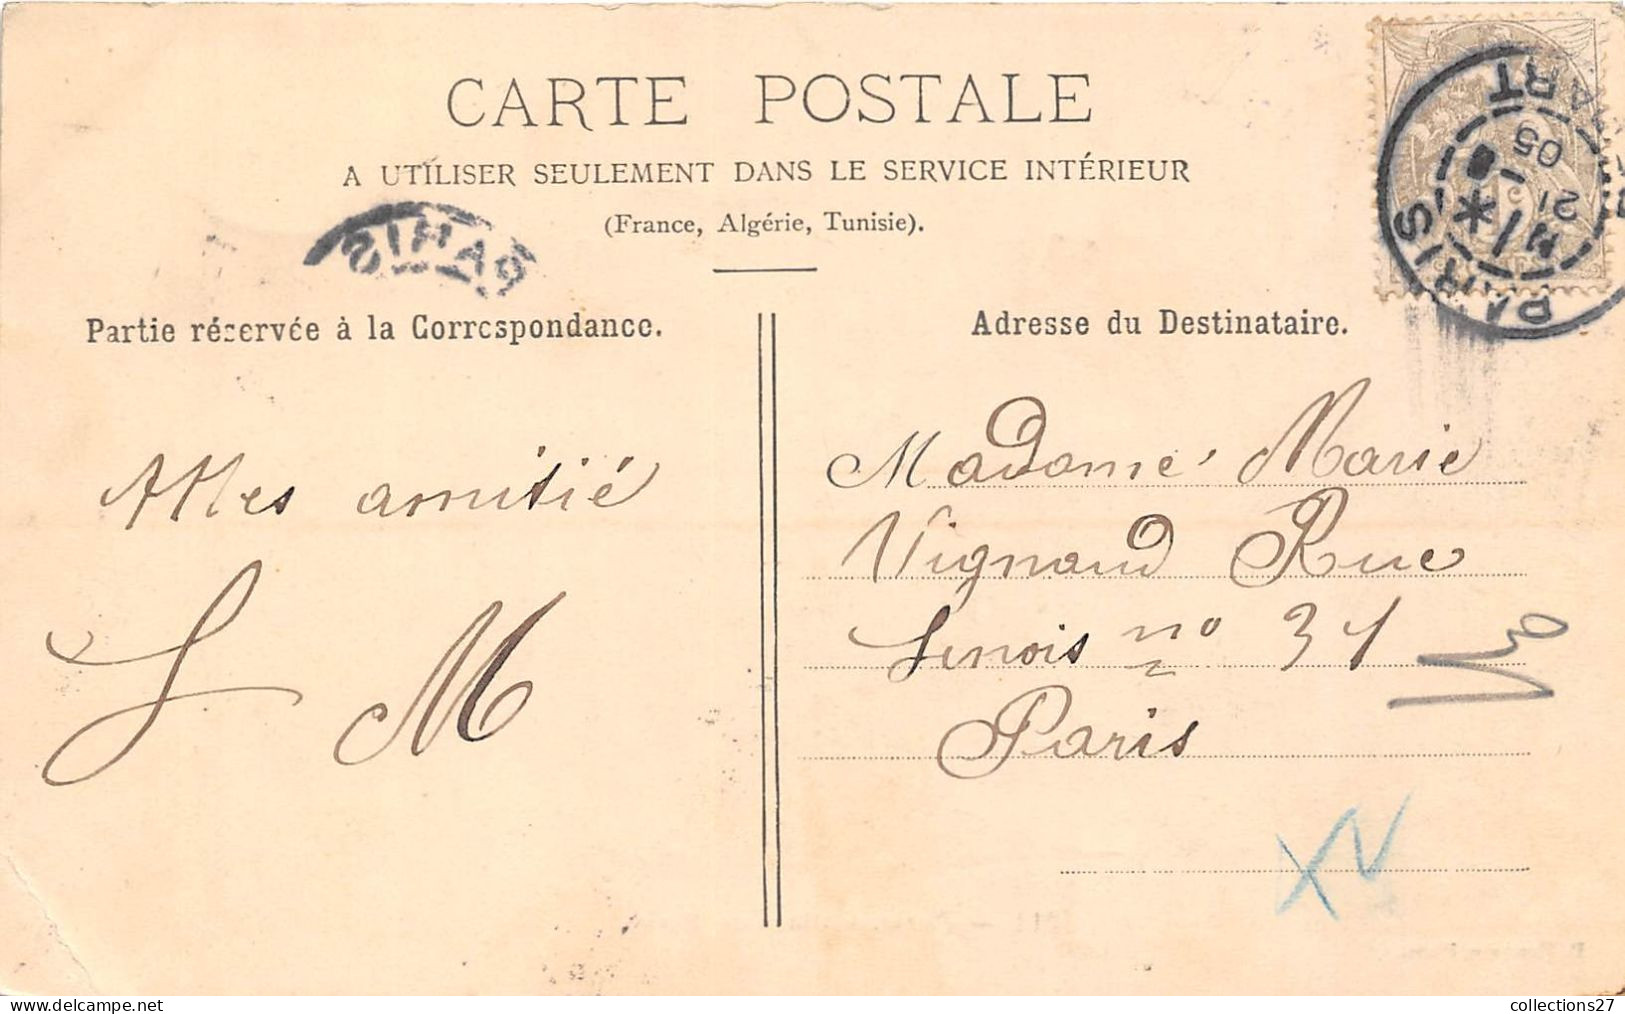 CARTE POSTALE
A UTILISER SEULEMENT DANS LE SERVICE INTÉRIEUR
(France, Algérie, Tunisie).
PARIS
PARIS
21
05
Partie réservée à la Correspondance.
Adresse du Destinataire.
Mes amitié
M
Madame Marie
Vignaud Rue
Lenois no 31
Paris
collections27